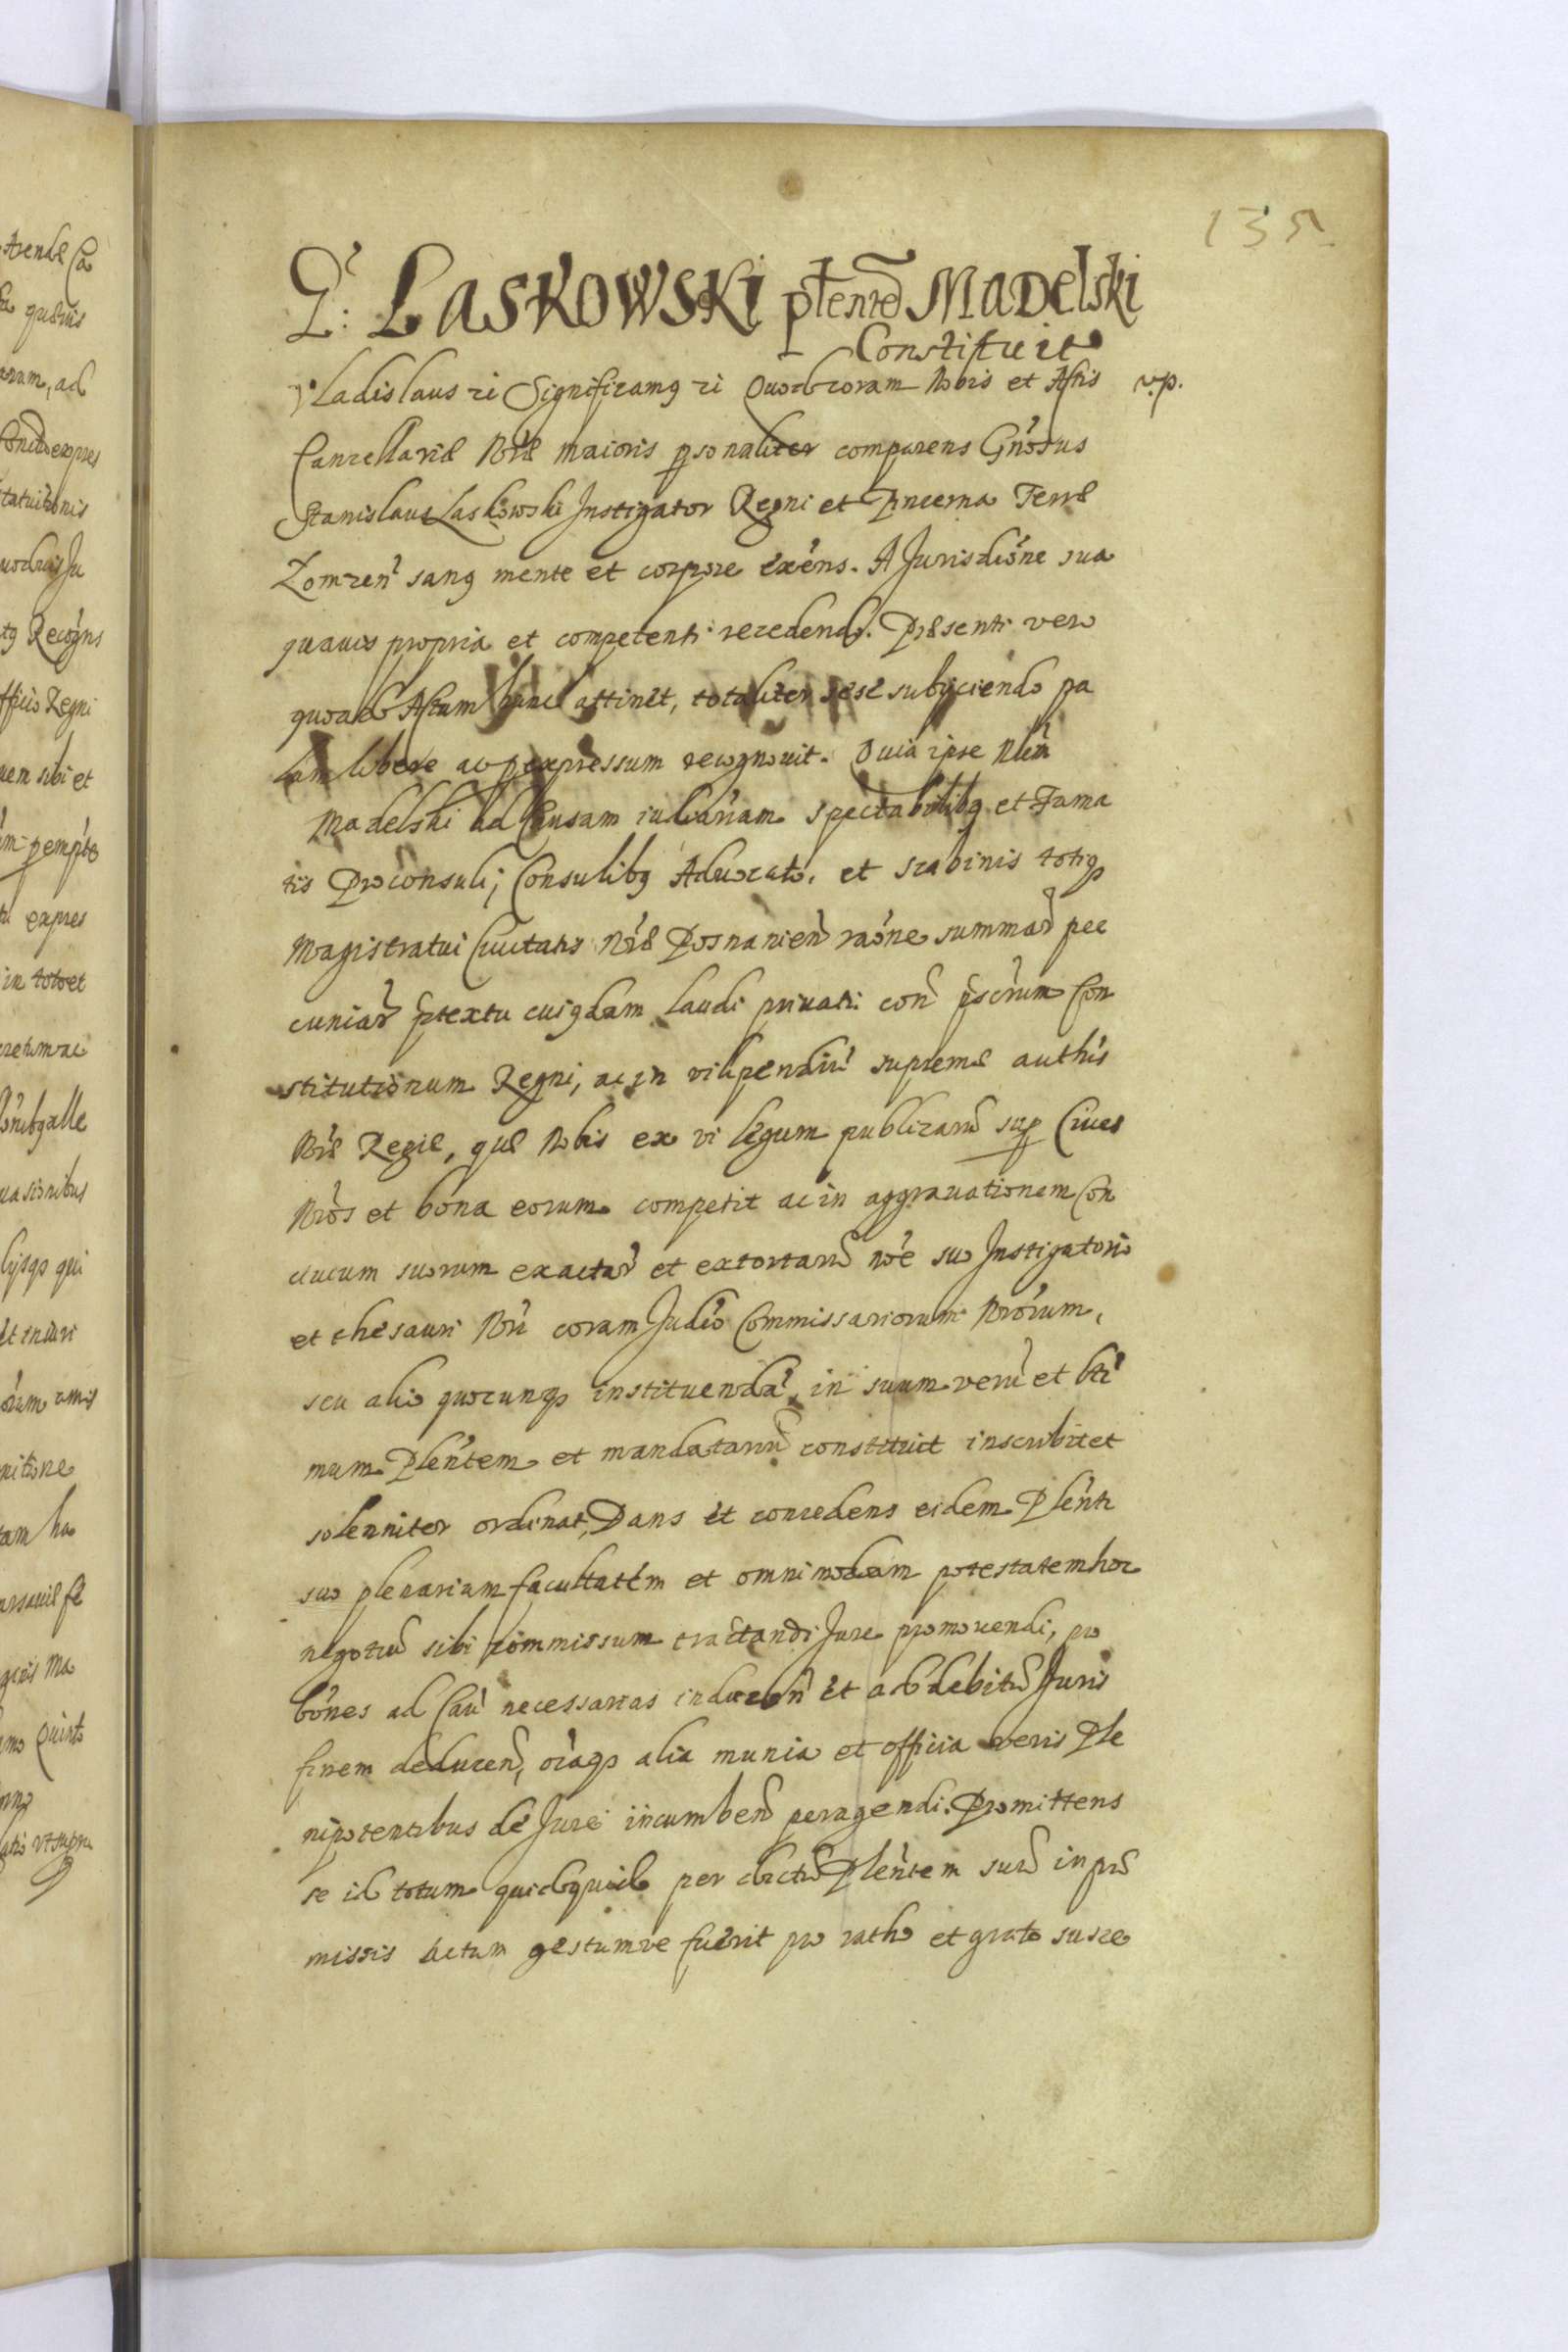 135
G. Laskowski plentem Madelski
Constituit
Vladislaus etc Significamus etc Quod coram Nobis et Actis v.p.
Cancellariæ Nræ maioris personaliter comparens Gnosus
Stanislaus Laskowski Instigator Regni et Pincerna Terræ
Lomzen sanus mente et corpore exens. A Jurisdione sua
quavis propria et competenti recedendo. Præsenti vero
quoad Actum hunc attinet, totaliter sese subyciendo pa
lam libere ac per expressum recognovit. Quia ipse Nlem
Madelski ad Causam iudiariam spectabilibus et Fama
tis Proconsuli, Consulibus Advocato, et scabinis totiq
Magistratui Civitatis Nræ Posnanien raone summar pec
cuniar prtextu cuiusdam laudi privati con prscrum Con
stitutionum Regni, ac in vilipendiu supremæ authis
Nræ Regiæ, quæ Nobis ex vi legum publicaru sup Cives
Nros et bona eorum competit ac in aggravationem Con
civium suorum exactar et extortaru noe suo Instigatorio
et thesauri Nri coram Judio Commissariorum Nrorum,
seu alio quocunq instituenda, in suum veru et ltti
mum Plentem et mandatariu constituit inscribit et
solenniter ordinat, Dans et concedens eidem Plenti
suo plenariam facultatem et omnimodam potestatem hoc
negotiu sibi commissum tractandi Jure promovendi, pro
bones ad Cau necessarias inducen et ad debitu Juris
finem deducen, oiaq alia munia et officia veris Ple
nipotentibus de Jure incumben peragendi. Promittens
se id totum quidquid per dictu Plentem suu in præ
missis actum gestumve fuerit pro ratho et grato susce